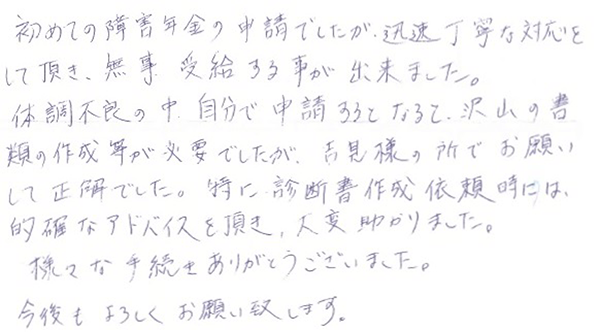 初めての障害年金の申請でしたが、迅速丁寧な対応を
して頂き、無事、受給する事が出来ました。
体調不良の中、自分で申請するとなると、沢山の書
類の作成等が必要でしたが、吉見様の所でお願い
して正解でした。特に診断書作成依頼時には、
的確なアドバイスを頂き、大変助かりました。
様々な手続きありがとうございました。
今後もよろしくお願い致します。